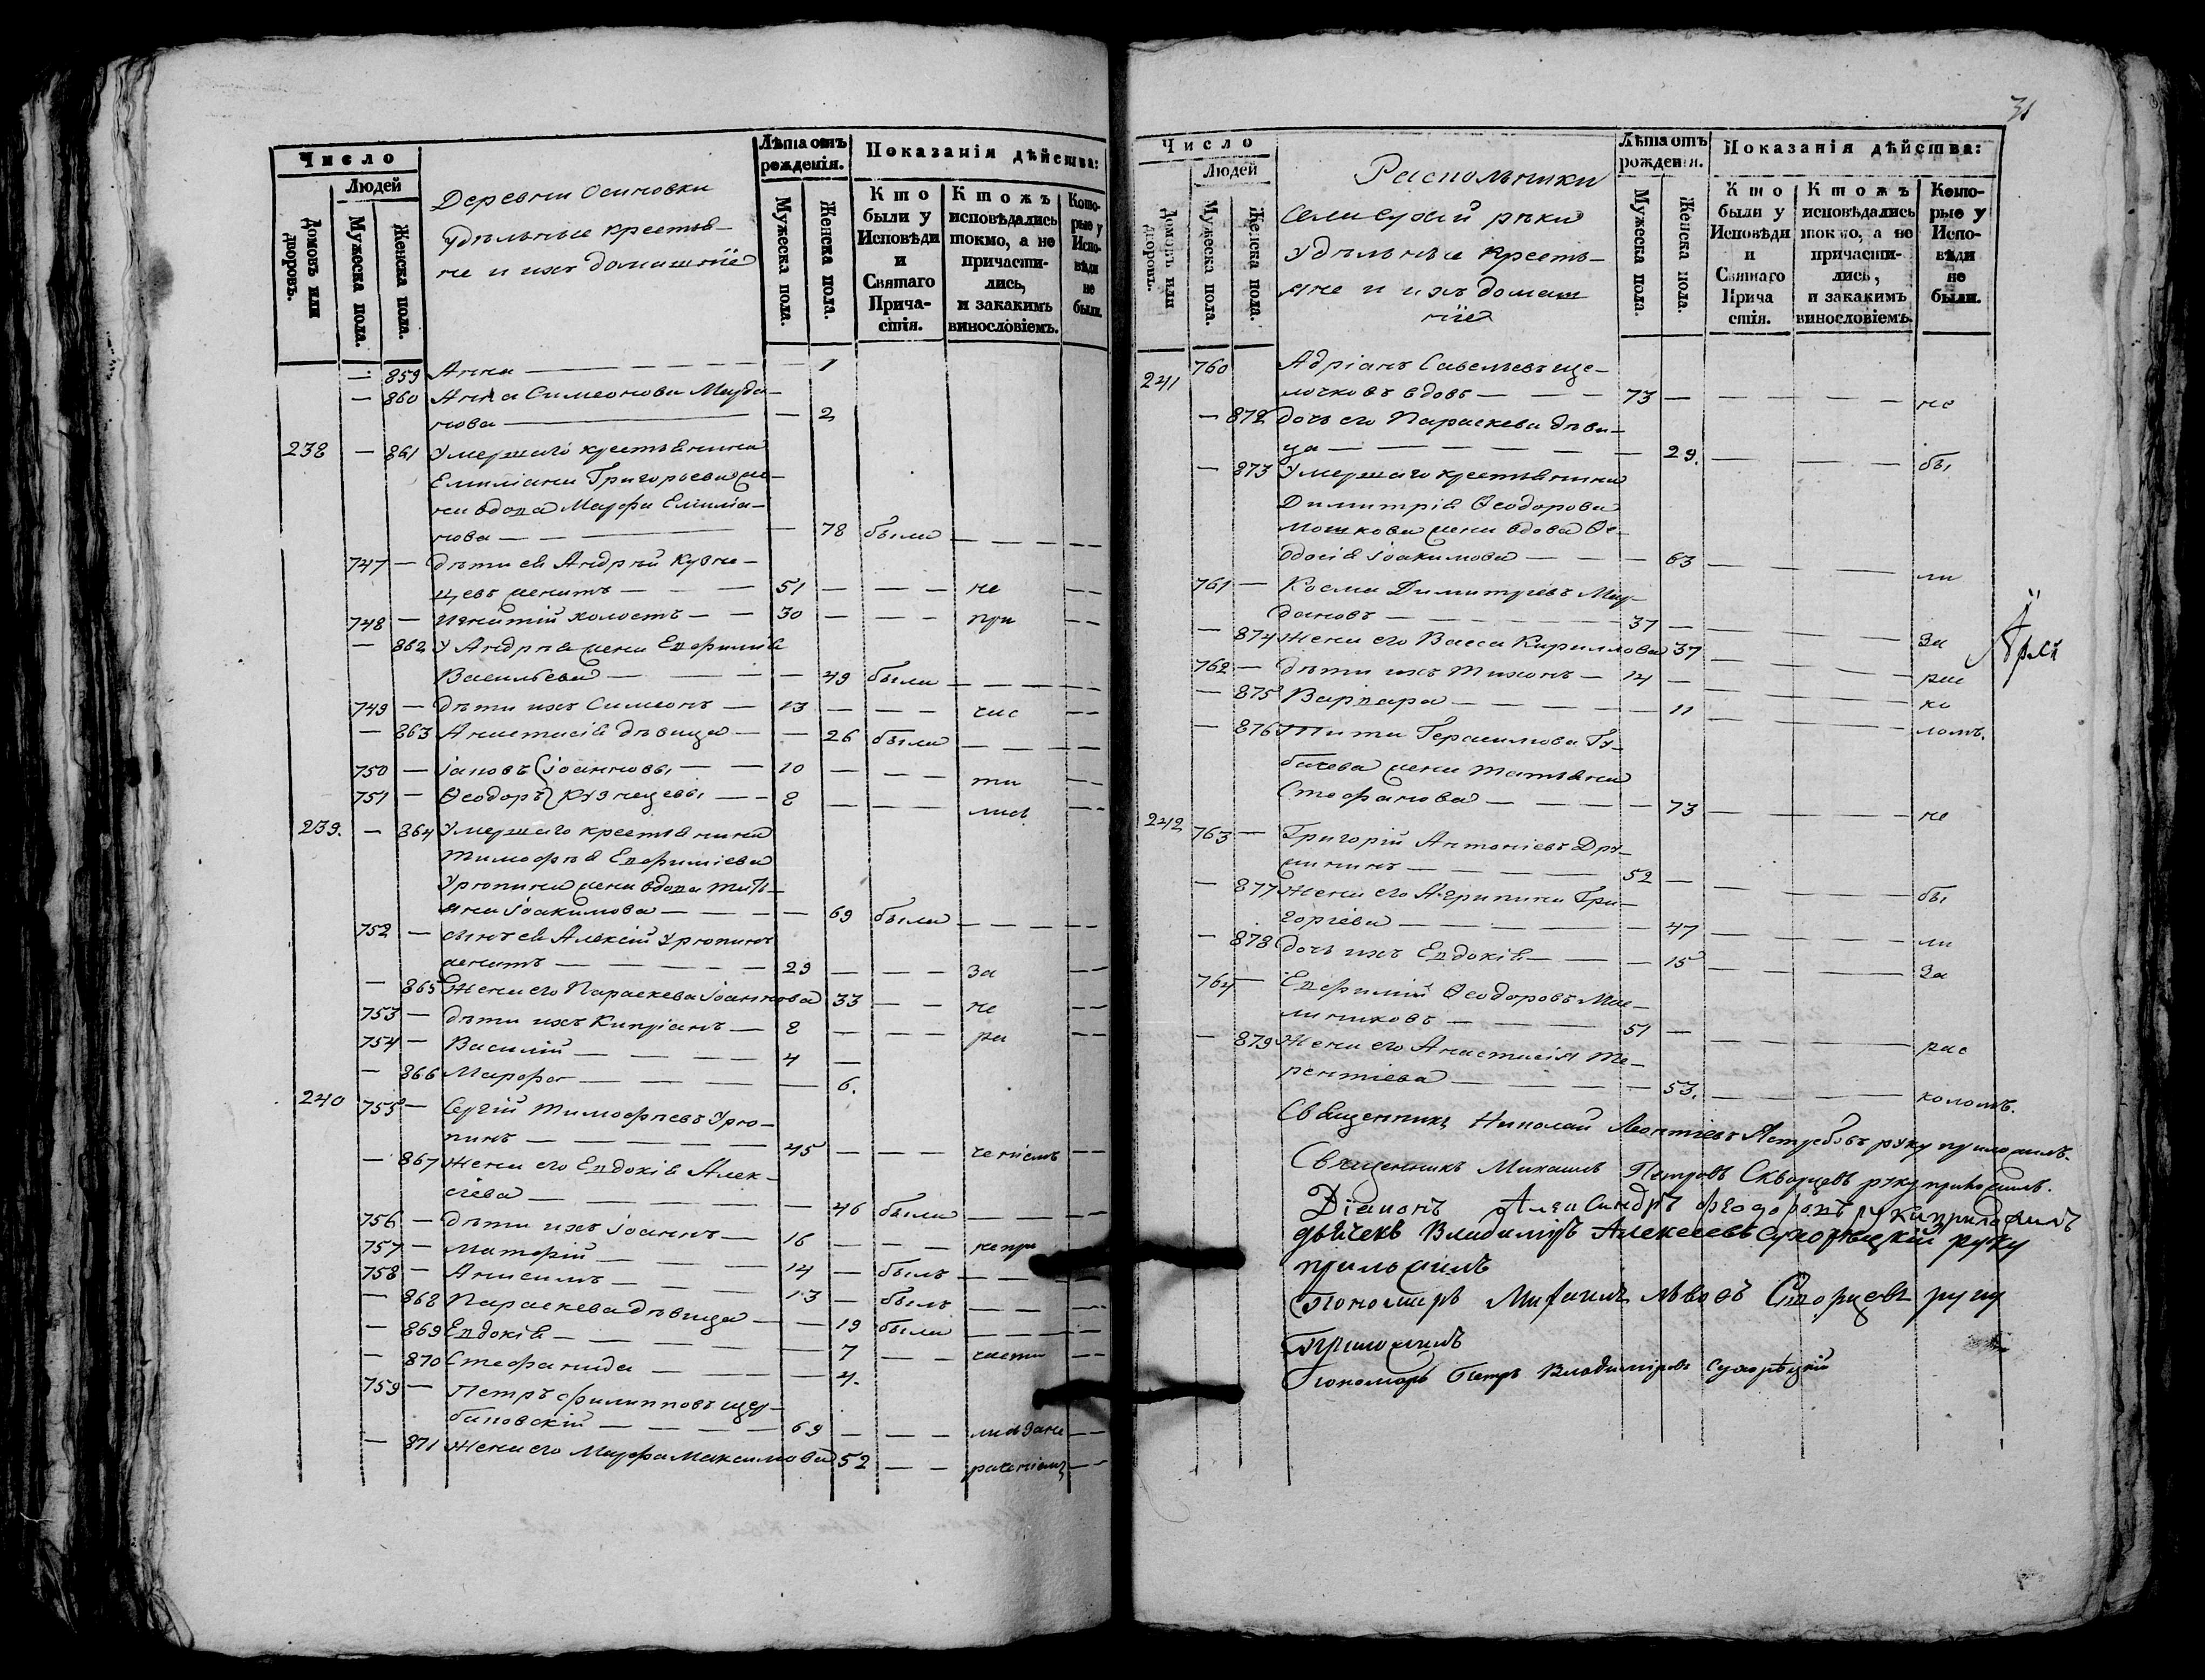 Число
Людей
Домовъ или дворовъ.
Мужеска пола.
Женска пола.
Деревни Осиновки
удѣльные крестья-
не и ихъ домашнïе
Лѣта отъ рожденiя.
Мужеска пола.
Женска пола.
Показанiя дѣйства:
Кто были у Исповѣди и Святаго Причастiя.
Ктожъ исповѣдались токмо, а не причастились, и закакимъ винословiемъ.
Которые у Исповѣди не были.
— 859 Анна — — — 1
— 860 Анна Симеонова Мауда-
нова — — 2
238 — 861 Умершаго крестьянина
Емилiана Григорьева же-
на вдова Марфа Емилiа-
нова — — 78 были — — —
747 — дѣти ея Андрей Кузне-
цевъ женатъ — — 51 — — — не — —
748 — Игнатiй холостъ — — 30 — — — при — —
— 862 У Андрея жена Евфимiя
Васильева — — — 49 были — — —
749 — дѣти ихъ Симеонъ — 13 — — — час — —
— 863 Анастасiя дѣвица — — 26 были — — —
750 — Iаковъ Iоанновы — — 10 — — — ти — —
751 — Ѳеодоръ Кузнецевы — — 8 — — — лись — —
239. — 864 Умершаго крестьянина
Тимофея Евфимiева
Урюпина жена вдова Татъ-
яна Iоакимова — — — 69 были — — —
752 — сынъ ея Алексiй Урюпинъ
женатъ — — — 29 — — — за — —
— 865 Жена его Параскева Iоаннова 33 — — не — —
753 — дѣти ихъ Кипрiанъ — 8 — — — ра — —
754 — Василiй — — — 4 —
— 866 Марфа — — — — 6.
240 755 — Сергiй Тимофеевъ Урю-
пинъ — — — 45 — — — ченiемъ — —
— 867 Жена его Евдокiя Алек-
сiева — — — 46 были — — —
756 — дѣти ихъ Iоаннъ — 16 — — — непри
757 — Матфiй — — 14 — былъ — — —
758 — Анисимъ — — 13 — былъ — — —
— 868 Параскева дѣвица — — 19 были — — —
— 869 Евдокiя — — — 7 — — части — —
— 870 Стефанида — — — 4.
759 — Петръ Филипповъ Щер-
баковскiй — — — 69 — — — лись зане — —
— 871 Жена его Марфа Максимова 52 — — раченiемъ — —
31
Число
Людей
Домовъ или дворовъ.
Мужеска пола.
Женска пола.
Раскольники
удѣльные кресть-
яне и ихъ домаш
нïе
Лѣта отъ рожденiя.
Мужеска пола.
Женска пола.
Показанiя дѣйства:
Кто были у Исповѣди и Святаго Причастiя.
Ктожъ исповѣдались токмо, а не причастились, и закакимъ винословiемъ.
Которые у Исповѣди не были.
241 760 Адрiанъ Савельевъ Ще-
лочковъ вдовъ — — — 73 — — — — не
— 872 дочь его Параскева дѣви-
ца — — — — 29. — — — бы
— 873 Умершаго крестьянина
Димитрiя Ѳеодорова
Мошкова жена вдова Ѳе-
одосiя Iоакимова — — — 63 — — — ли
761 — Косма Димитрiевъ Мау-
дановъ — — — 37 — — — — за
— 874 Жена его Васса Кириллова 37 — — — рас
762 — дѣти ихъ Тихонъ — 14 — — — — ко
— 875 Варвара — — — — 11 — — — ломъ.
— 876 Тита Герасимова Гу-
бачева жена Татьяна
Стефанова — — — 73 — — — не
242 763 — Григорiй Антонiевъ Дру-
жининъ — — — 52 — — — — бы
— 877 Жена его Агрипина Гри-
горiева — — — 47 — — — ли
— 878 дочь ихъ Евдокiя — — — 15 — — — за
764 — Евфимiй Ѳеодоровъ Мас-
лениковъ — — — 51 — — — — рас
— 879 Жена его Анастасiя Те-
рентiева — — — 53. — — — коломъ.
Священникъ Николай Леонтiевъ Ястребовъ руку приложилъ.
Священникъ Михаилъ Петровъ Скварцевъ руку приложилъ.
Дiаконъ Александръ Феодоровъ руку приложилъ
дьячекъ Владимiръ Алексеевъ Сухорѣцкiй руку
приложилъ
Пономарь Михаилъ Львовъ Скворцевъ руку
приложилъ
Пономарь Петръ Владимiровъ Сухорѣцкiй